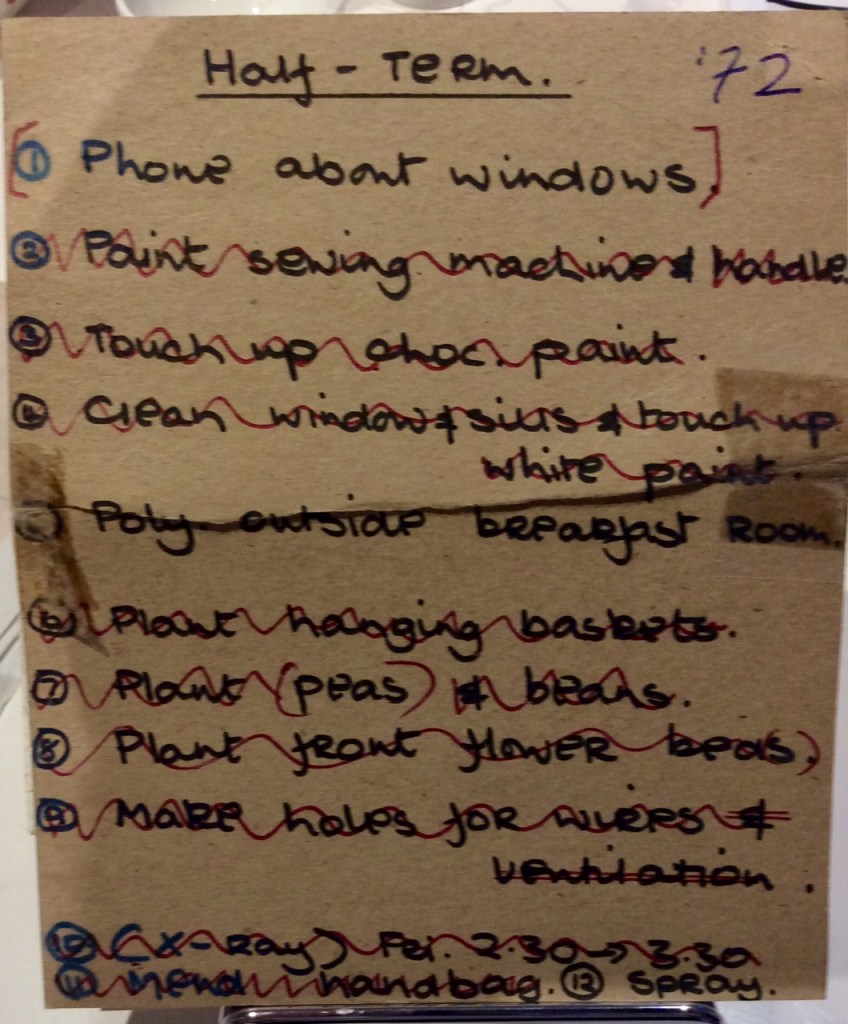 Half-Term. '72
[① Phone about windows.]
② Paint sewing machine & handle.
③ Touch up choc. paint.
④ Clean window & sills & touch up
white paint.
⑤ Poly. outside breakfast room.
⑥ Plant hanging baskets.
⑦ Plant (peas) & beans.
⑧ Plant front flower beds)
⑨ Make holes for wires &
ventilation.
⑩ (X-Ray) Fri. 2.30→3.30
⑪ Mend handbag. ⑫ Spray.